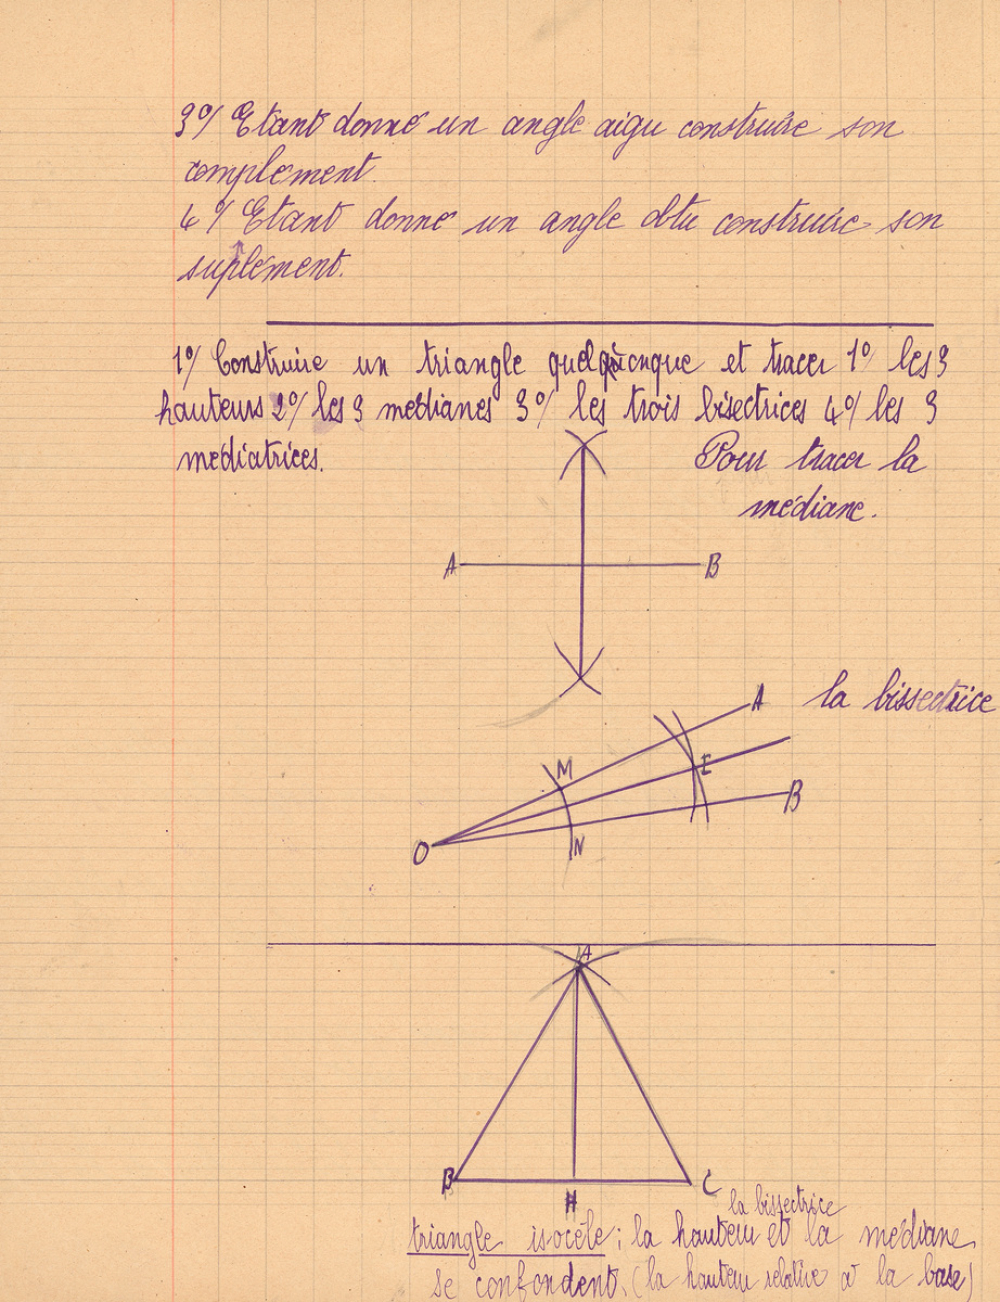 3°/ Etant donné un angle aigu construire son
complément.
4°/ Etant donné un angle obtu construire son
suplément.
1°/ Construire un triangle quelquonque et tracer 1°/ les 3
hauteurs 2°/ les 3 médianes 3°/ les trois bisectrices 4°/ les 3
médiatrices.
Pour tracer la
médiane.
A B
la bissectrice
A
M
E
B
O
N
A
B
C
H
la bissectrice
triangle isocèle : la hauteur et la médiane
se confondent. (la hauteur relative à la base)